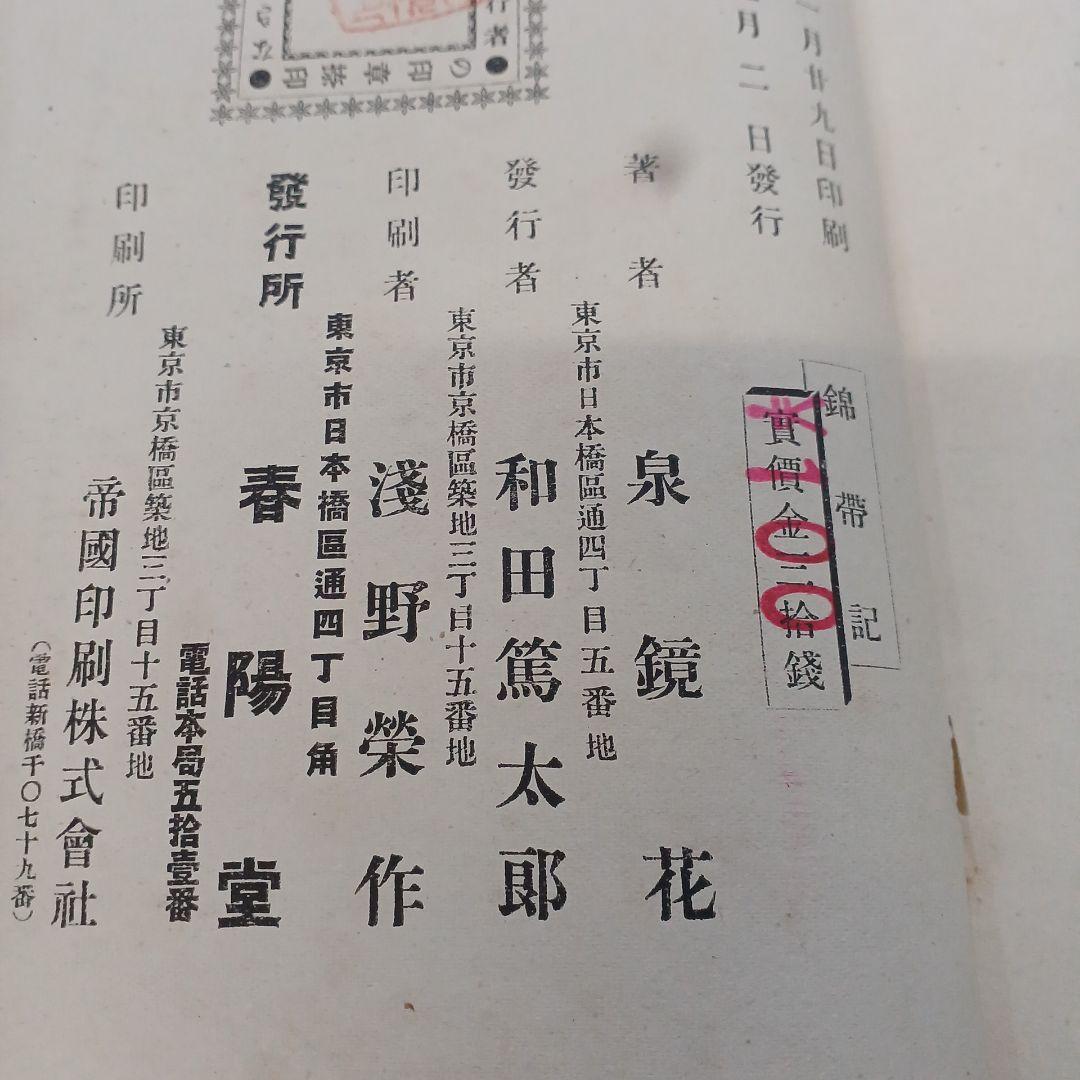 月廿九日印刷
月二日發行
錦帶記
實價金二拾錢
¥100
著者
東京市日本橋區通四丁目五番地
泉鏡花
發行者
和田篤太郎
東京市京橋區築地三丁目十五番地
印刷者
淺野榮作
東京市日本橋區通四丁目角
發行所
春陽堂
電話本局五拾壹番
東京市京橋區築地三丁目十五番地
印刷所
帝國印刷株式會社
(電話新橋千〇七十九番)
行者
の印章捺印
なら